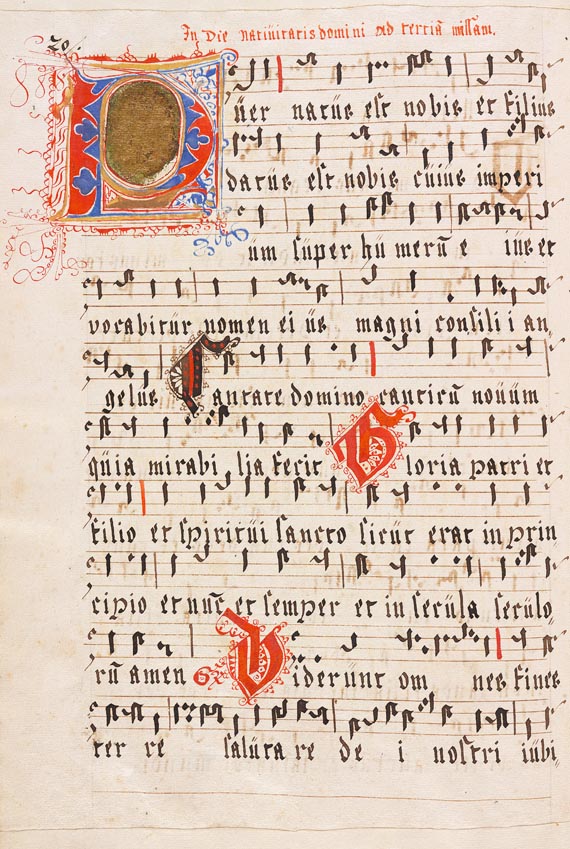 In Die nativitatis domini ad terciã missam.
20.
Puer natus est nobis et filius
datus est nobis cuius imperi
um super hu merũ e ius et
vocabitur nomen ei us magni consili i an
gelus Cantate domino canticũ novum
quia mirabi lia fecit Gloria patri et
filio et spiritui sancto sicut erat in prin
cipio et nũc et semper et in secula seculo
rũ amen Gr Viderunt om nes fines
ter re saluta re de i nostri iubi